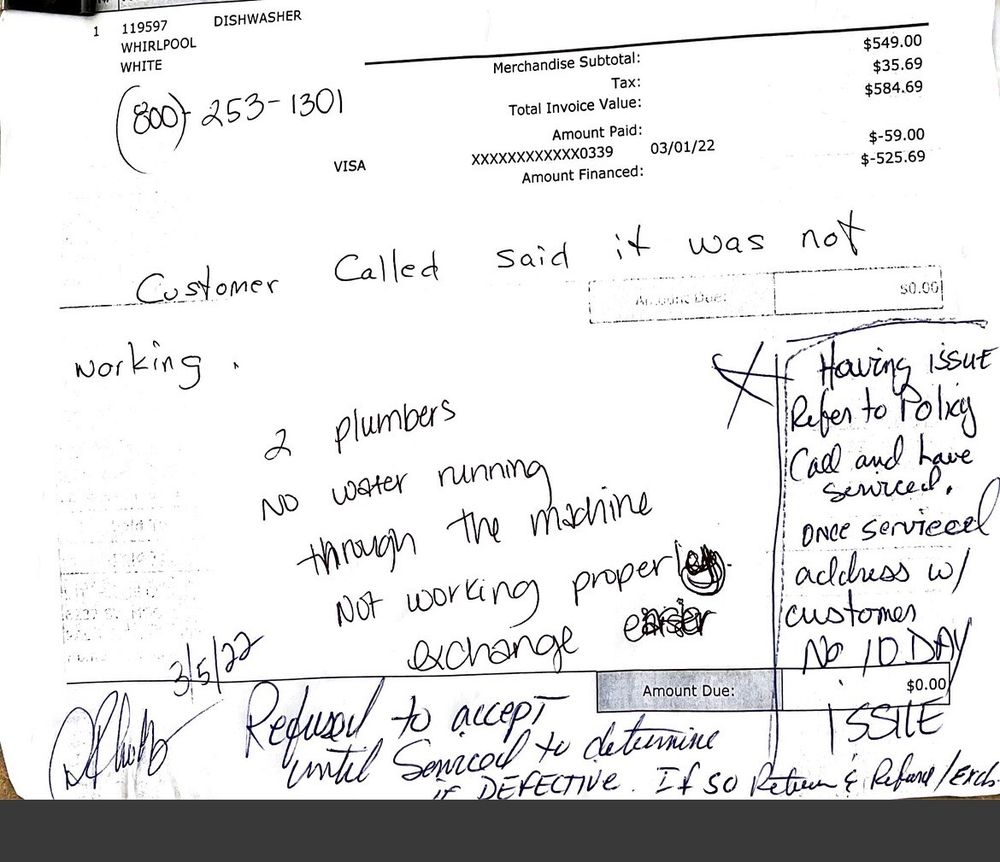 1 119597 DISHWASHER
WHIRLPOOL
WHITE
(800)-253-1301
Merchandise Subtotal: $549.00
Tax: $35.69
Total Invoice Value: $584.69
Amount Paid:
VISA XXXXXXXXXXXX0339 03/01/22 $-59.00
Amount Financed: $-525.69
Customer Called said it was not
Amount Due: $0.00
working.
2 plumbers
No water running
through the machine
Not working properly
exchange
Having ISSUE
Refer to Policy
Call and have
serviced.
ONCE serviced
address w/
customer
No 10 DAY
ISSUE
3/5/22
Amount Due: $0.00
Refusal to accept
until Serviced to determine
IF DEFECTIVE. If so Return & Refund/Exch